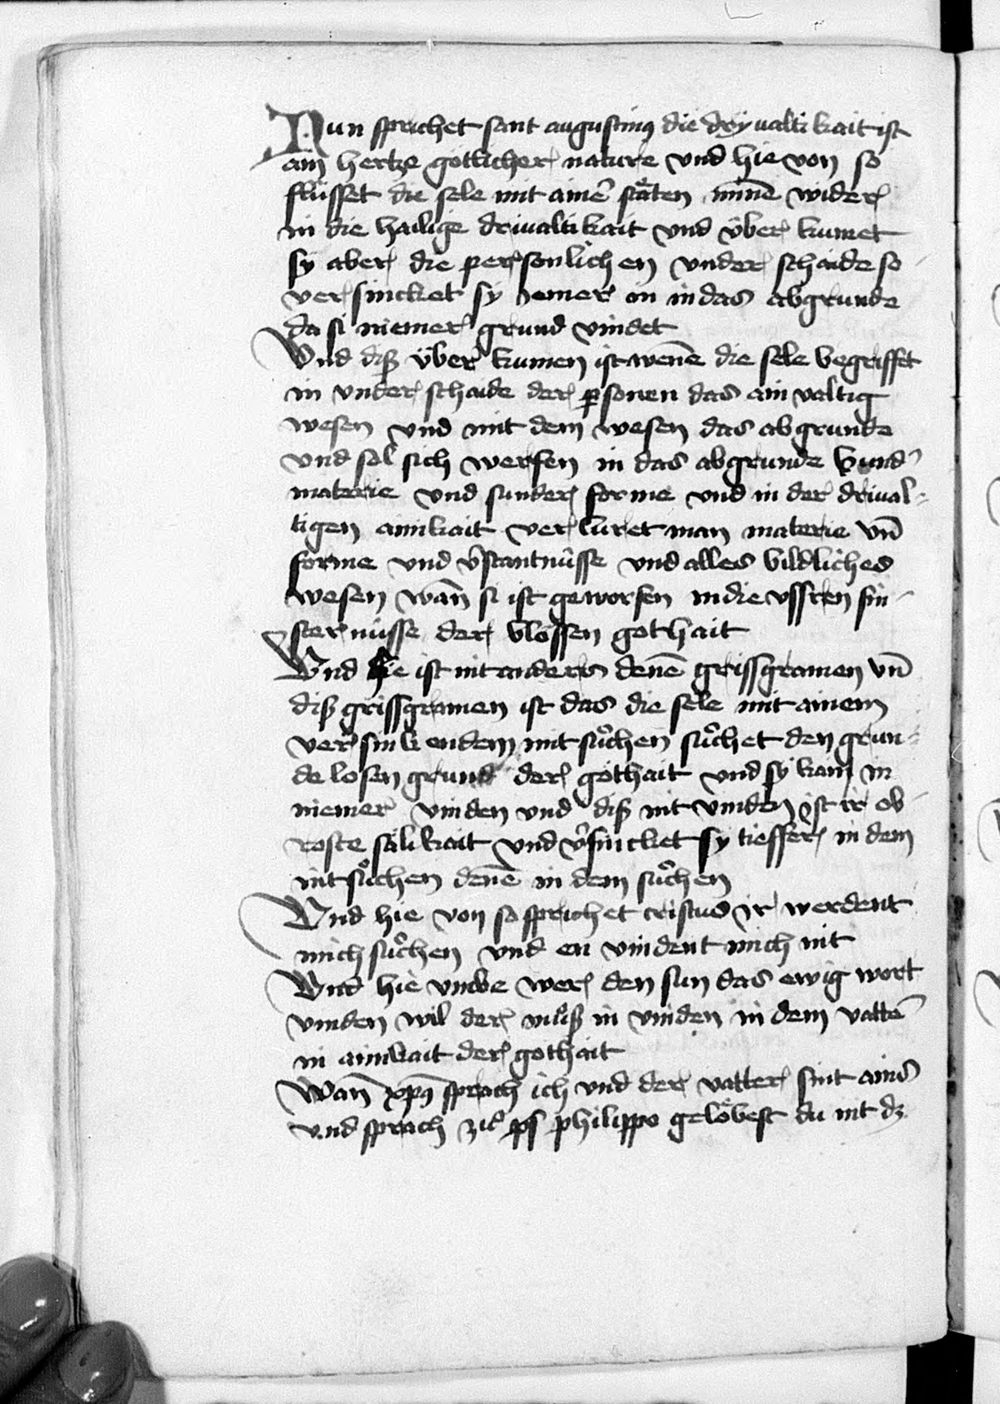 Nun sprichet sant augustinꝰ die dryualtikait ist
ain hertze götlicher nature vnd hie von so
flüsset die sele mit ainē stäten minnē wider
in die hailige driualtikait vnd über kumet
sy aber die personlichen vnder schaide so
versincket sy iemer in in das abgrunde
da si niemer grund vindet
Vnd diß über kumen ist wenē die sele begriffet
in vnder schaide der psonen das ain valtig
wesen vnd mit dem wesen das abgrunde
vnd sol sich werfen in das abgrunde sund
materie vnd sunder forme vnd in der drival-
tigen ainikait verlüret man materie vn̄
forme vnd v̄stantnüsse vnd alles bildliches
wesen wan̄ si ist geworfen in die vssren fin-
sternüsse der blössen gothait
Vnd hie ist nit anders denē grissgramen vn̄
diß grissgramen ist das die sele mit ainem
versinkendem nitsůchen sůchet den grun-
de losen grund der gothait vnd sy kan in
niemer vinden vnd diß nit vinden ist ir ob-
roste sälikait vnd v̄sincket sy tieffer in dem
nitsůchen denē in dem sůchen
Vnd hie von so sprichet cristus ir werdent
mich sůchen vnd en vindent mich nit
Vnd hie vmbe wer den sun das ewig wort
vinden wil der můß in vinden in dem vattē
in ainikait der gothait
Wan̄ xpꝰ sprach ich vnd der vatter sint ains
vnd sprach zů philippo gelöbest du nit dz